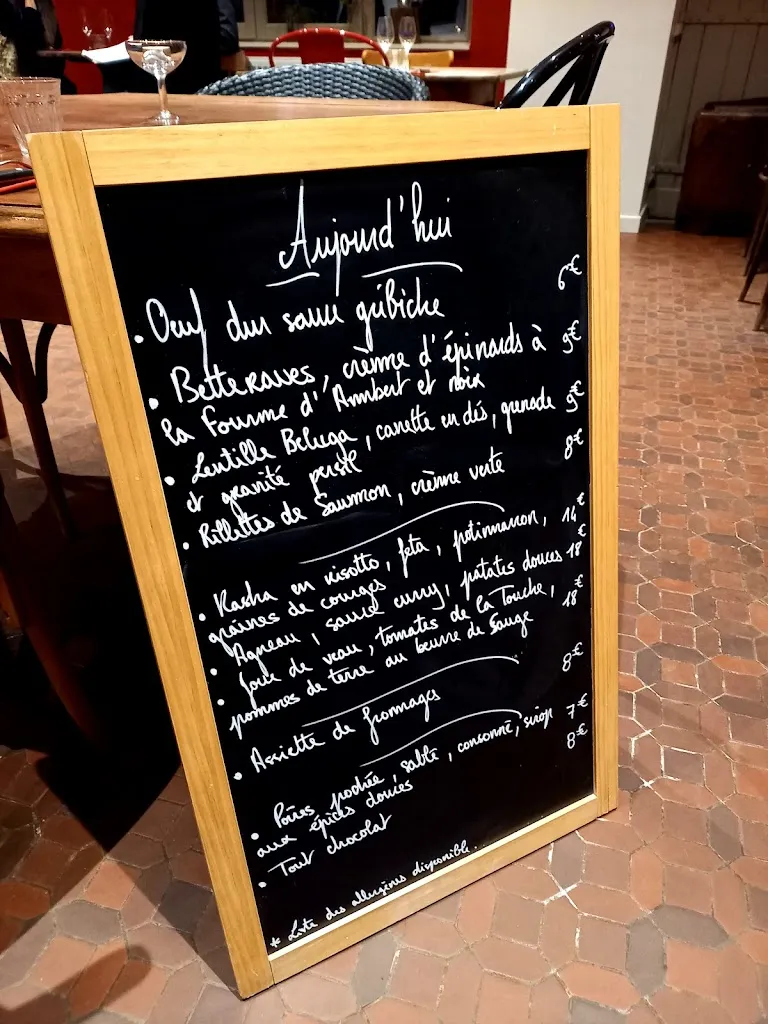 Aujourd'hui
• Oeuf dur sauce gribiche 6€
• Betteraves, crème d'épinards à 9€
la Fourme d'Ambert et noix
• Lentille Beluga, canette en dés, grenade 9€
et granité persil
• Rillettes de Saumon, crème verte 8€
• Kasha en risotto, feta, potimarron, 14€
graines de courges
• Agneau, sauce curry, patates douces 18€
• Joue de veau, tomates de la Touche, 18€
pommes de terre au beurre de Sauge
• Assiette de fromages 8€
• Poires pochée, sablé, consommé, sirop 7€
aux épices douces
• Tout chocolat 8€
* Liste des allergènes disponible.